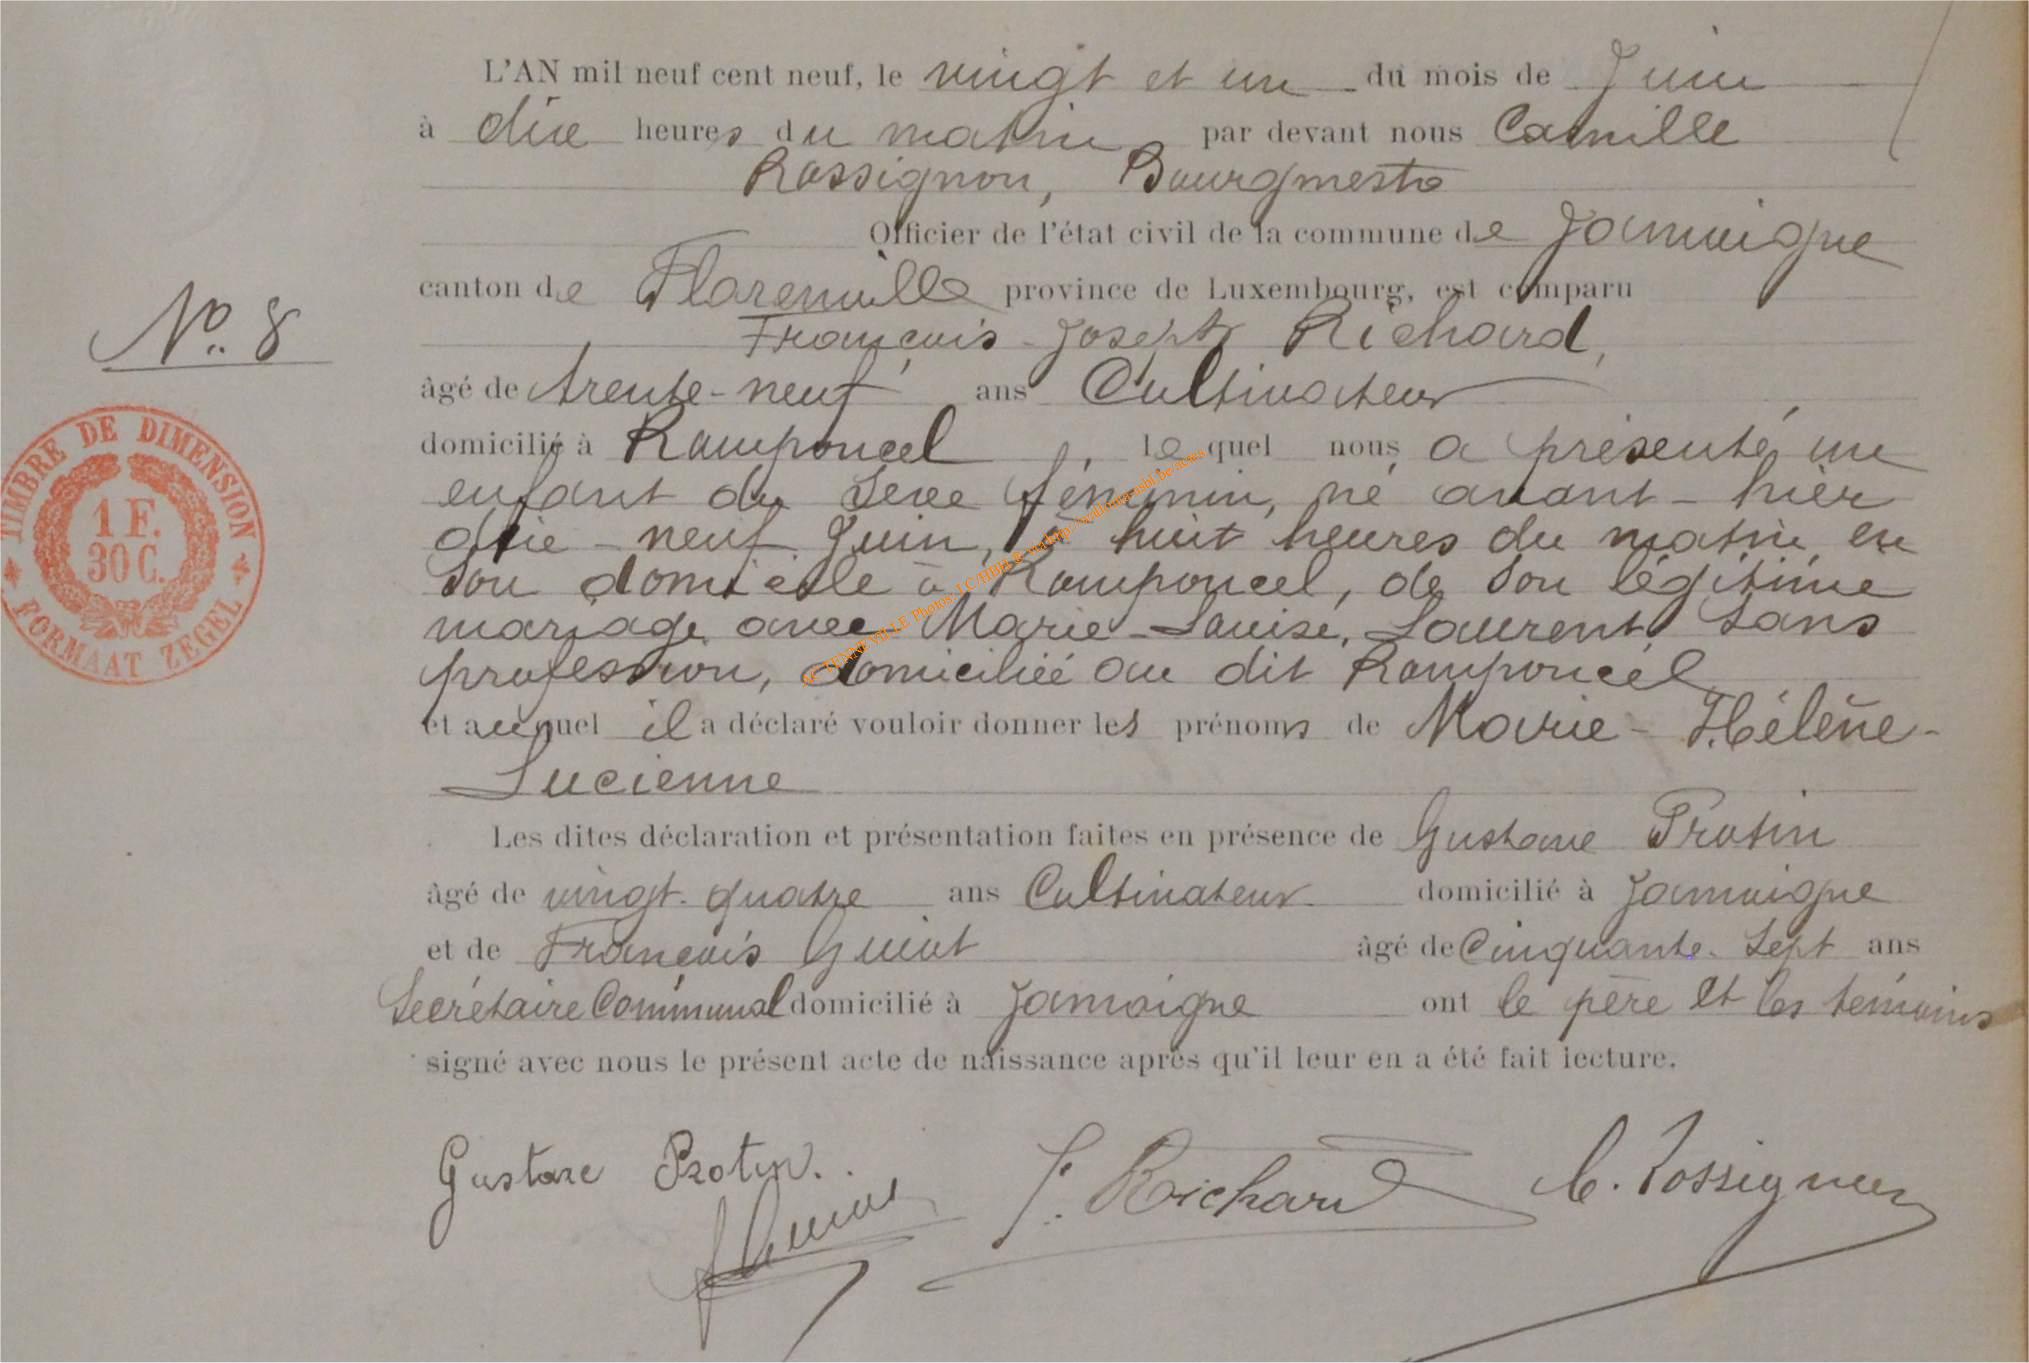 L'AN mil neuf cent neuf, le vingt et un du mois de Juin
à dix heures du matin par devant nous Camille
Rossignon, Bourgmestre
Officier de l'état civil de la commune de Jamoigne
canton de Florenville province de Luxembourg, est comparu
François-Joseph Richard,
No. 8
âgé de trente-neuf ans Cultivateur
domicilié à Romponcel, lequel nous a présenté un
enfant du sexe féminin, né avant-hier
dix-neuf Juin, à huit heures du matin en
son domicile à Romponcel, de son légitime
mariage avec Marie-Louise, Laurent sans
profession, domiciliée au dit Romponcel
et auquel il a déclaré vouloir donner les prénoms de Marie-Hélène-
Lucienne
Les dites déclaration et présentation faites en présence de Gustave Protin
âgé de vingt-quatre ans Cultivateur domicilié à Jamoigne
et de François Guiot âgé de Cinquante-sept ans
Secrétaire Communal domicilié à Jamoigne ont le père et les témoins
signé avec nous le présent acte de naissance après qu'il leur en a été fait lecture.
Gustave Protin.
J. Richard
C. Rossignon
TIMBRE DE DIMENSION
1 F.
30 C.
FORMAAT ZEGEL